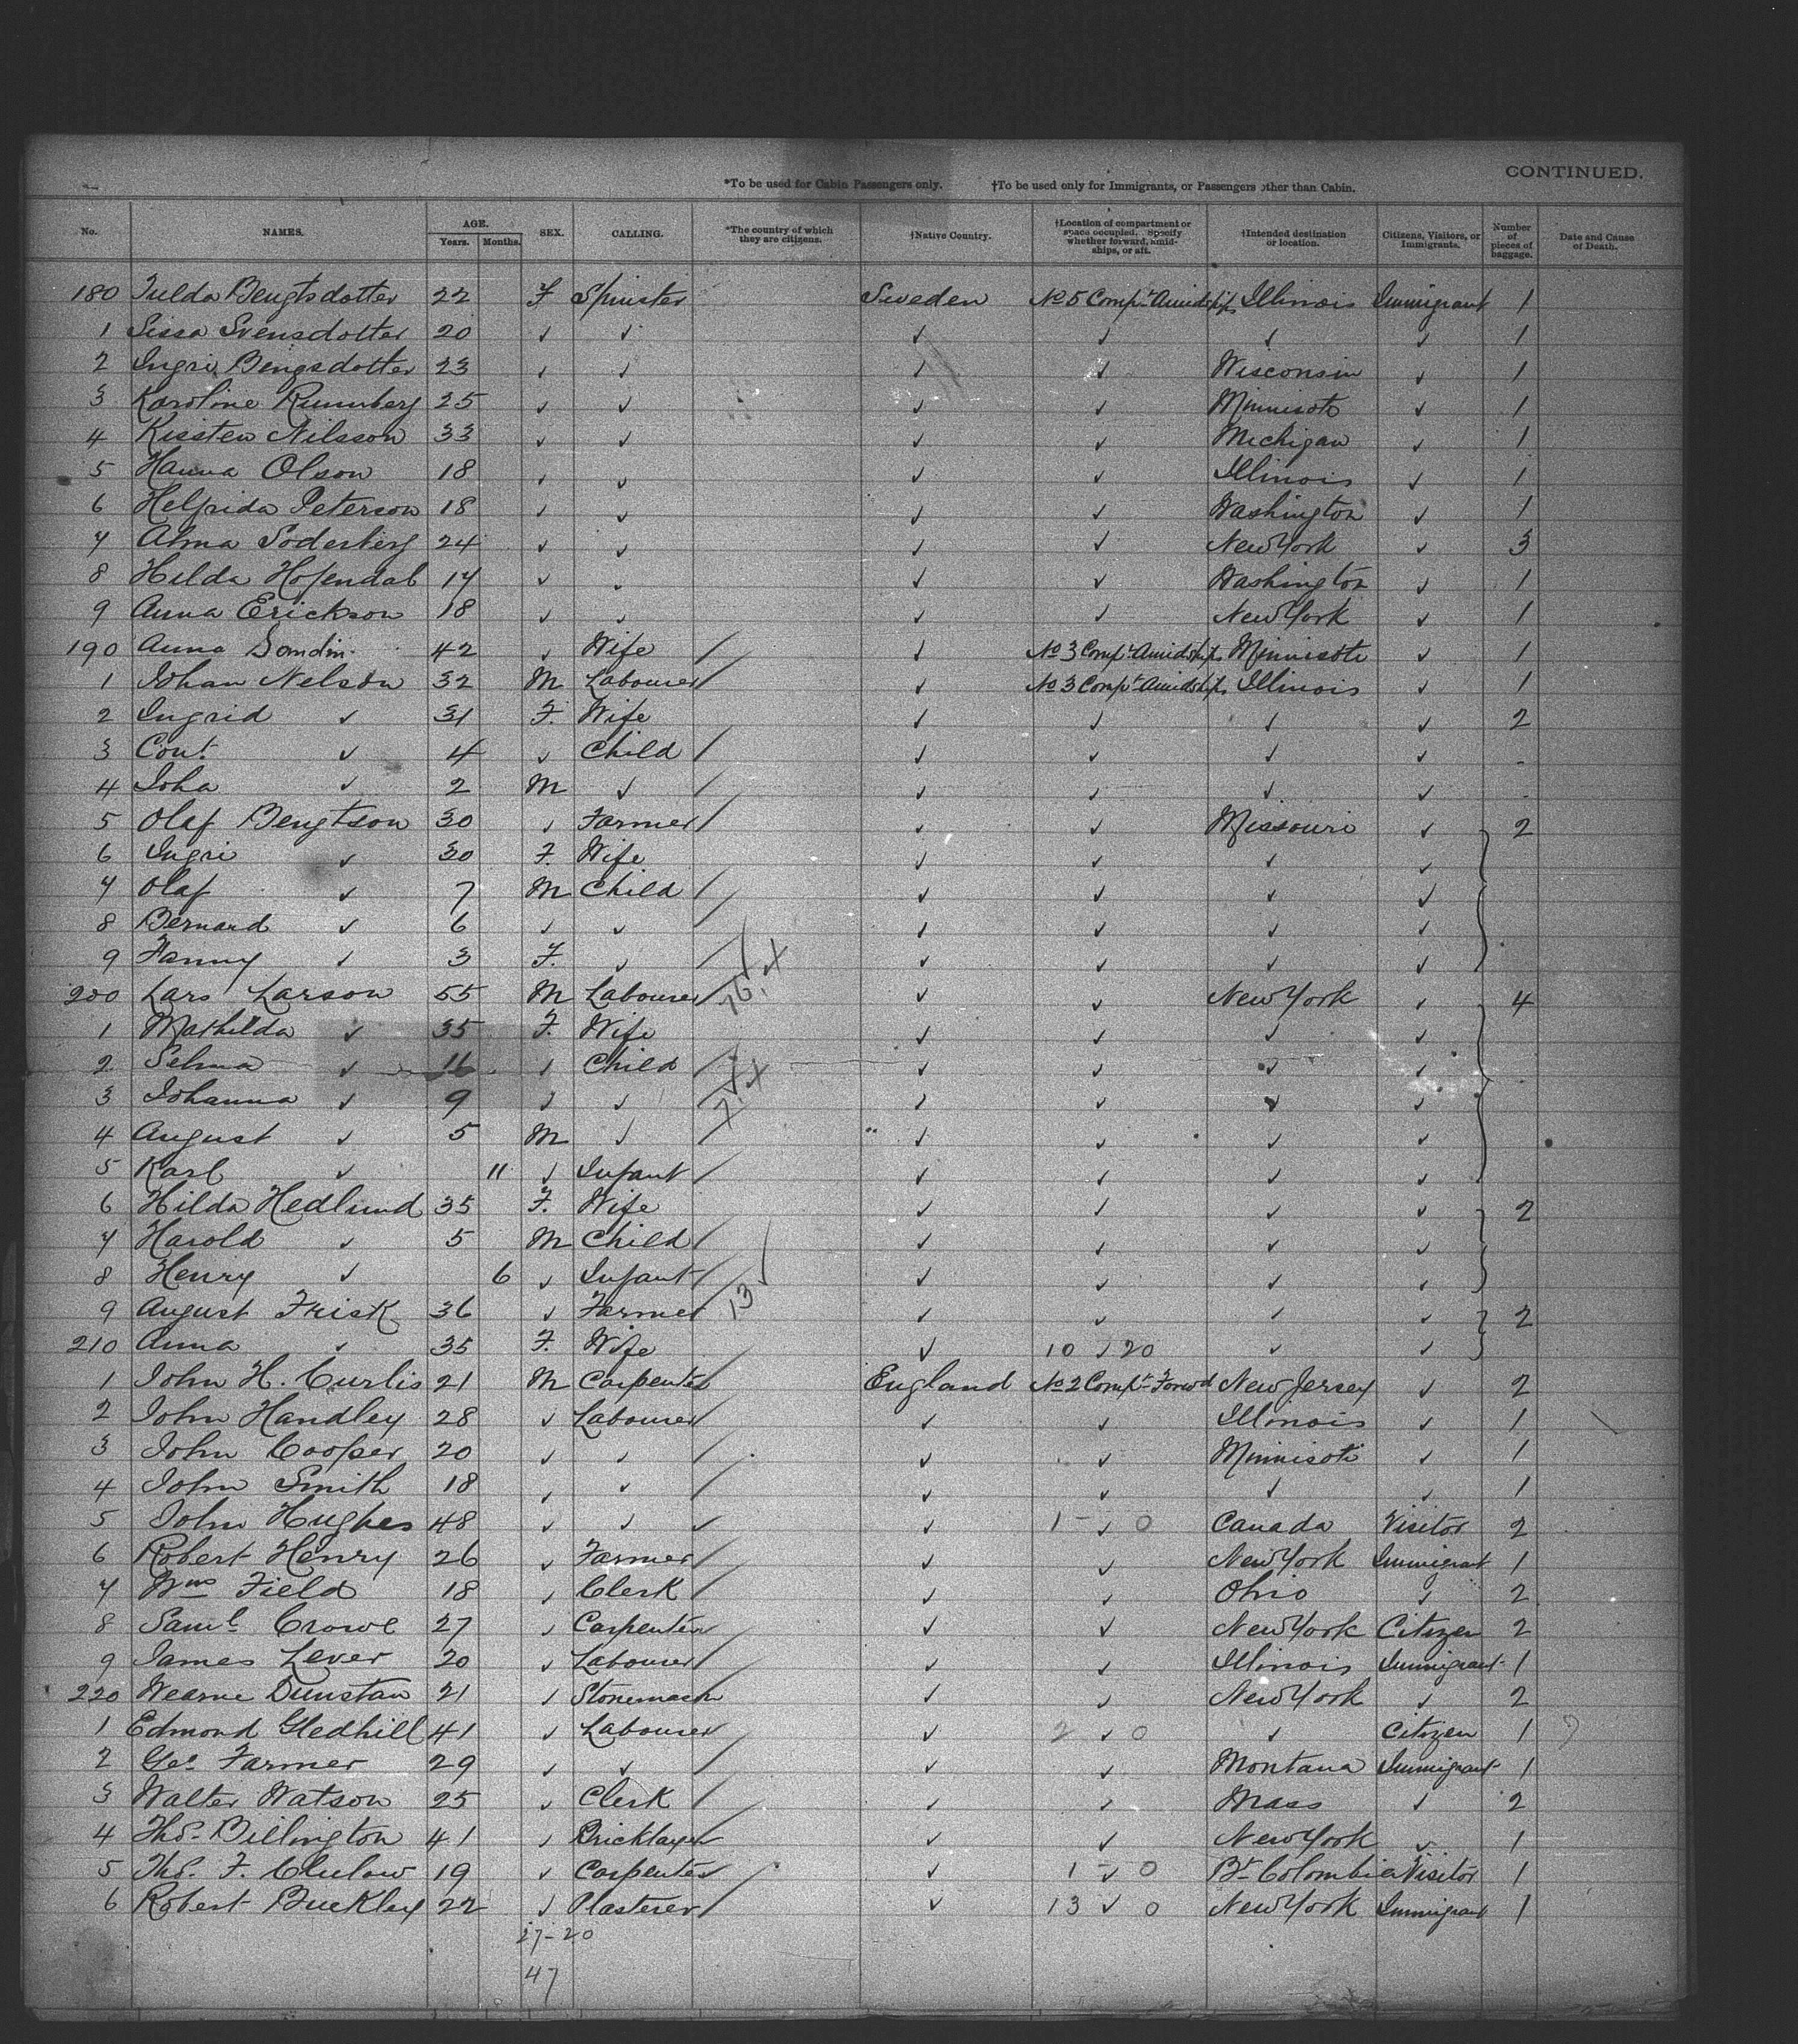 CONTINUED.
*To be used for Cabin Passengers only. †To be used only for Immigrants, or Passengers other than Cabin.
No. NAMES. AGE. Years. Months. SEX. CALLING. *The country of which they are citizens. †Native Country. †Location of compartment or space occupied. Specify whether forward, amidships, or aft. †Intended destination or location. Citizens, Visitors, or Immigrants. Number of pieces of baggage. Date and Cause of Death.
180 Bengtsdotter 22 F Spinster Sweden No 5 Compt Amidships Illinois Immigrant 1
1 Sissa Svensdotter 20 ✓ ✓ ✓ ✓ ✓ ✓ 1
2 Ingri Bengsdotter 23 ✓ ✓ ✓ ✓ Wisconsin ✓ 1
3 Karoline 25 ✓ ✓ ✓ ✓ Minnisota ✓ 1
4 Kisten Nilsson 33 ✓ ✓ ✓ ✓ Michigan ✓ 1
5 Hanna Olson 18 ✓ ✓ ✓ ✓ Illinois ✓ 1
6 Helfrida Peterson 18 ✓ ✓ ✓ ✓ Washington ✓ 1
7 Alma Soderberg 24 ✓ ✓ ✓ ✓ New York ✓ 3
8 Hilda 17 ✓ ✓ ✓ ✓ Washington ✓ 1
9 Anna Erickson 18 ✓ ✓ ✓ ✓ New York ✓ 1
190 Anna 42 ✓ Wife / ✓ No 3 Compt Amidships Minnisota ✓ 1
1 Johan Nelson 32 M Labourer / ✓ No 3 Compt Amidships Illinois ✓ 1
2 Ingrid ✓ 31 F. Wife ✓ ✓ ✓ ✓ 2
3 ✓ 4 ✓ Child / ✓ ✓ ✓ ✓ -
4 Joha ✓ 2 M ✓ / ✓ ✓ ✓ ✓ -
5 Olaf Bengtson 30 ✓ Farmer / ✓ ✓ Missouri ✓ 2
6 Ingri ✓ 30 F. Wife ✓ ✓ ✓ ✓
7 Olaf ✓ 7 M Child / ✓ ✓ ✓ ✓
8 Bernard ✓ 6 ✓ ✓ / ✓ ✓ ✓ ✓
9 Fanny ✓ 3 F. ✓ / ✓ ✓ ✓ ✓
200 Lars Larson 55 M Labourer / ✓ ✓ New York ✓ 4
1 Mathilda ✓ 35 F. Wife ✓ ✓ ✓ ✓
2 Selma ✓ 16 ✓ Child / ✓ ✓ ✓ ✓
3 Johanna ✓ 9 ✓ ✓ / ✓ ✓ ✓ ✓
4 August ✓ 5 M ✓ / ✓ ✓ ✓ ✓
5 Karl ✓ 11 ✓ Infant / ✓ ✓ ✓ ✓
6 Hilda Hedlund 35 F. Wife ✓ ✓ ✓ ✓ 2
7 Harold ✓ 5 M Child / ✓ ✓ ✓ ✓
8 Henry ✓ 6 ✓ Infant / 13 ✓ ✓ ✓ ✓ ✓
9 August Frisk 36 ✓ Farmer ✓ ✓ ✓ ✓ 2
210 Anna ✓ 35 F. Wife ✓ 10 ✓ 20 ✓ ✓
1 John H. Curlis 21 M Carpenter England No 2 Compt Forwd New Jersey ✓ 2
2 John Handley 28 ✓ Labourer / ✓ ✓ Illinois ✓ 1
3 John Cooper 20 ✓ ✓ / ✓ ✓ Minnisota ✓ 1
4 John Smith 18 ✓ ✓ / ✓ ✓ ✓ ✓ 1
5 John Hughes 48 ✓ ✓ ✓ ✓ 1 - ✓ 0 Canada Visitor 2
6 Robert Henry 26 ✓ Farmer / ✓ ✓ New York Immigrant 1
7 Wm Field 18 ✓ Clerk / ✓ ✓ Ohio ✓ 2
8 Saml Crowe 27 ✓ Carpenter ✓ ✓ New York Citizen 2
9 James Lever 20 ✓ Labourer / ✓ ✓ Illinois Immigrant 1
220 Wearne Dunstan 21 ✓ Stonemason ✓ ✓ New York ✓ 2
1 Edmond Gledhill 41 ✓ Labourer ✓ 2 ✓ 0 ✓ Citizen 1
2 Geo. Farmer 29 ✓ ✓ / ✓ ✓ Montana Immigrant 1
3 Walter Watson 25 ✓ Clerk / ✓ ✓ Mass ✓ 2
4 Thos. Billington 41 ✓ Bricklayer ✓ ✓ New York ✓ 1
5 Thos. F. Clulow 19 ✓ Carpenter ✓ 1 - ✓ 0 Bt. Colombia Visitor 1
6 Robert Buckley 22 ✓ Plasterer / ✓ 13 ✓ 0 New York Immigrant 1
27-20
47